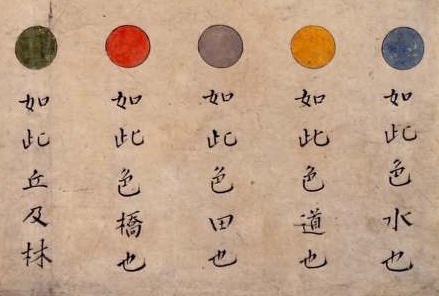 如此色水也
如此色道也
如此色田也
如此色橋也
如此丘及林